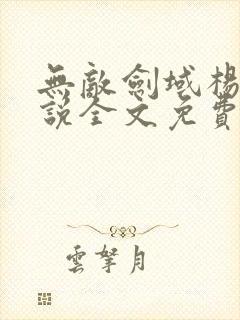 無敵劍域楊
說全文免費
雲拏月